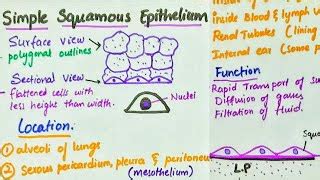 Simple Squamous Epithelium
Surface view →
polygonal outlines
Sectional View →
flattened cells with
less height than width.
Nuclei
Location:
① alveoli of lungs
② Serous pericardium, pleura & peritoneu
(mesothelium)
Inside Blood & lymph v
Renal Tubules (lining
Internal ear (some p
Function
Rapid Transport of su
Diffusion of gases
Filtration of fluid.
Squa
L.P